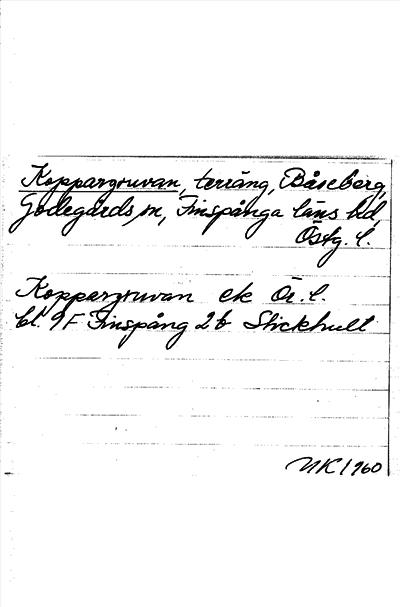 Koppargruvan, terräng, Båseberg,
Godegårds sn, Finspånga läns hd,
Östg. l.
Koppargruvan ek Ör. l.
bl. 9F Finspång 2b Stickhult
NK 1960